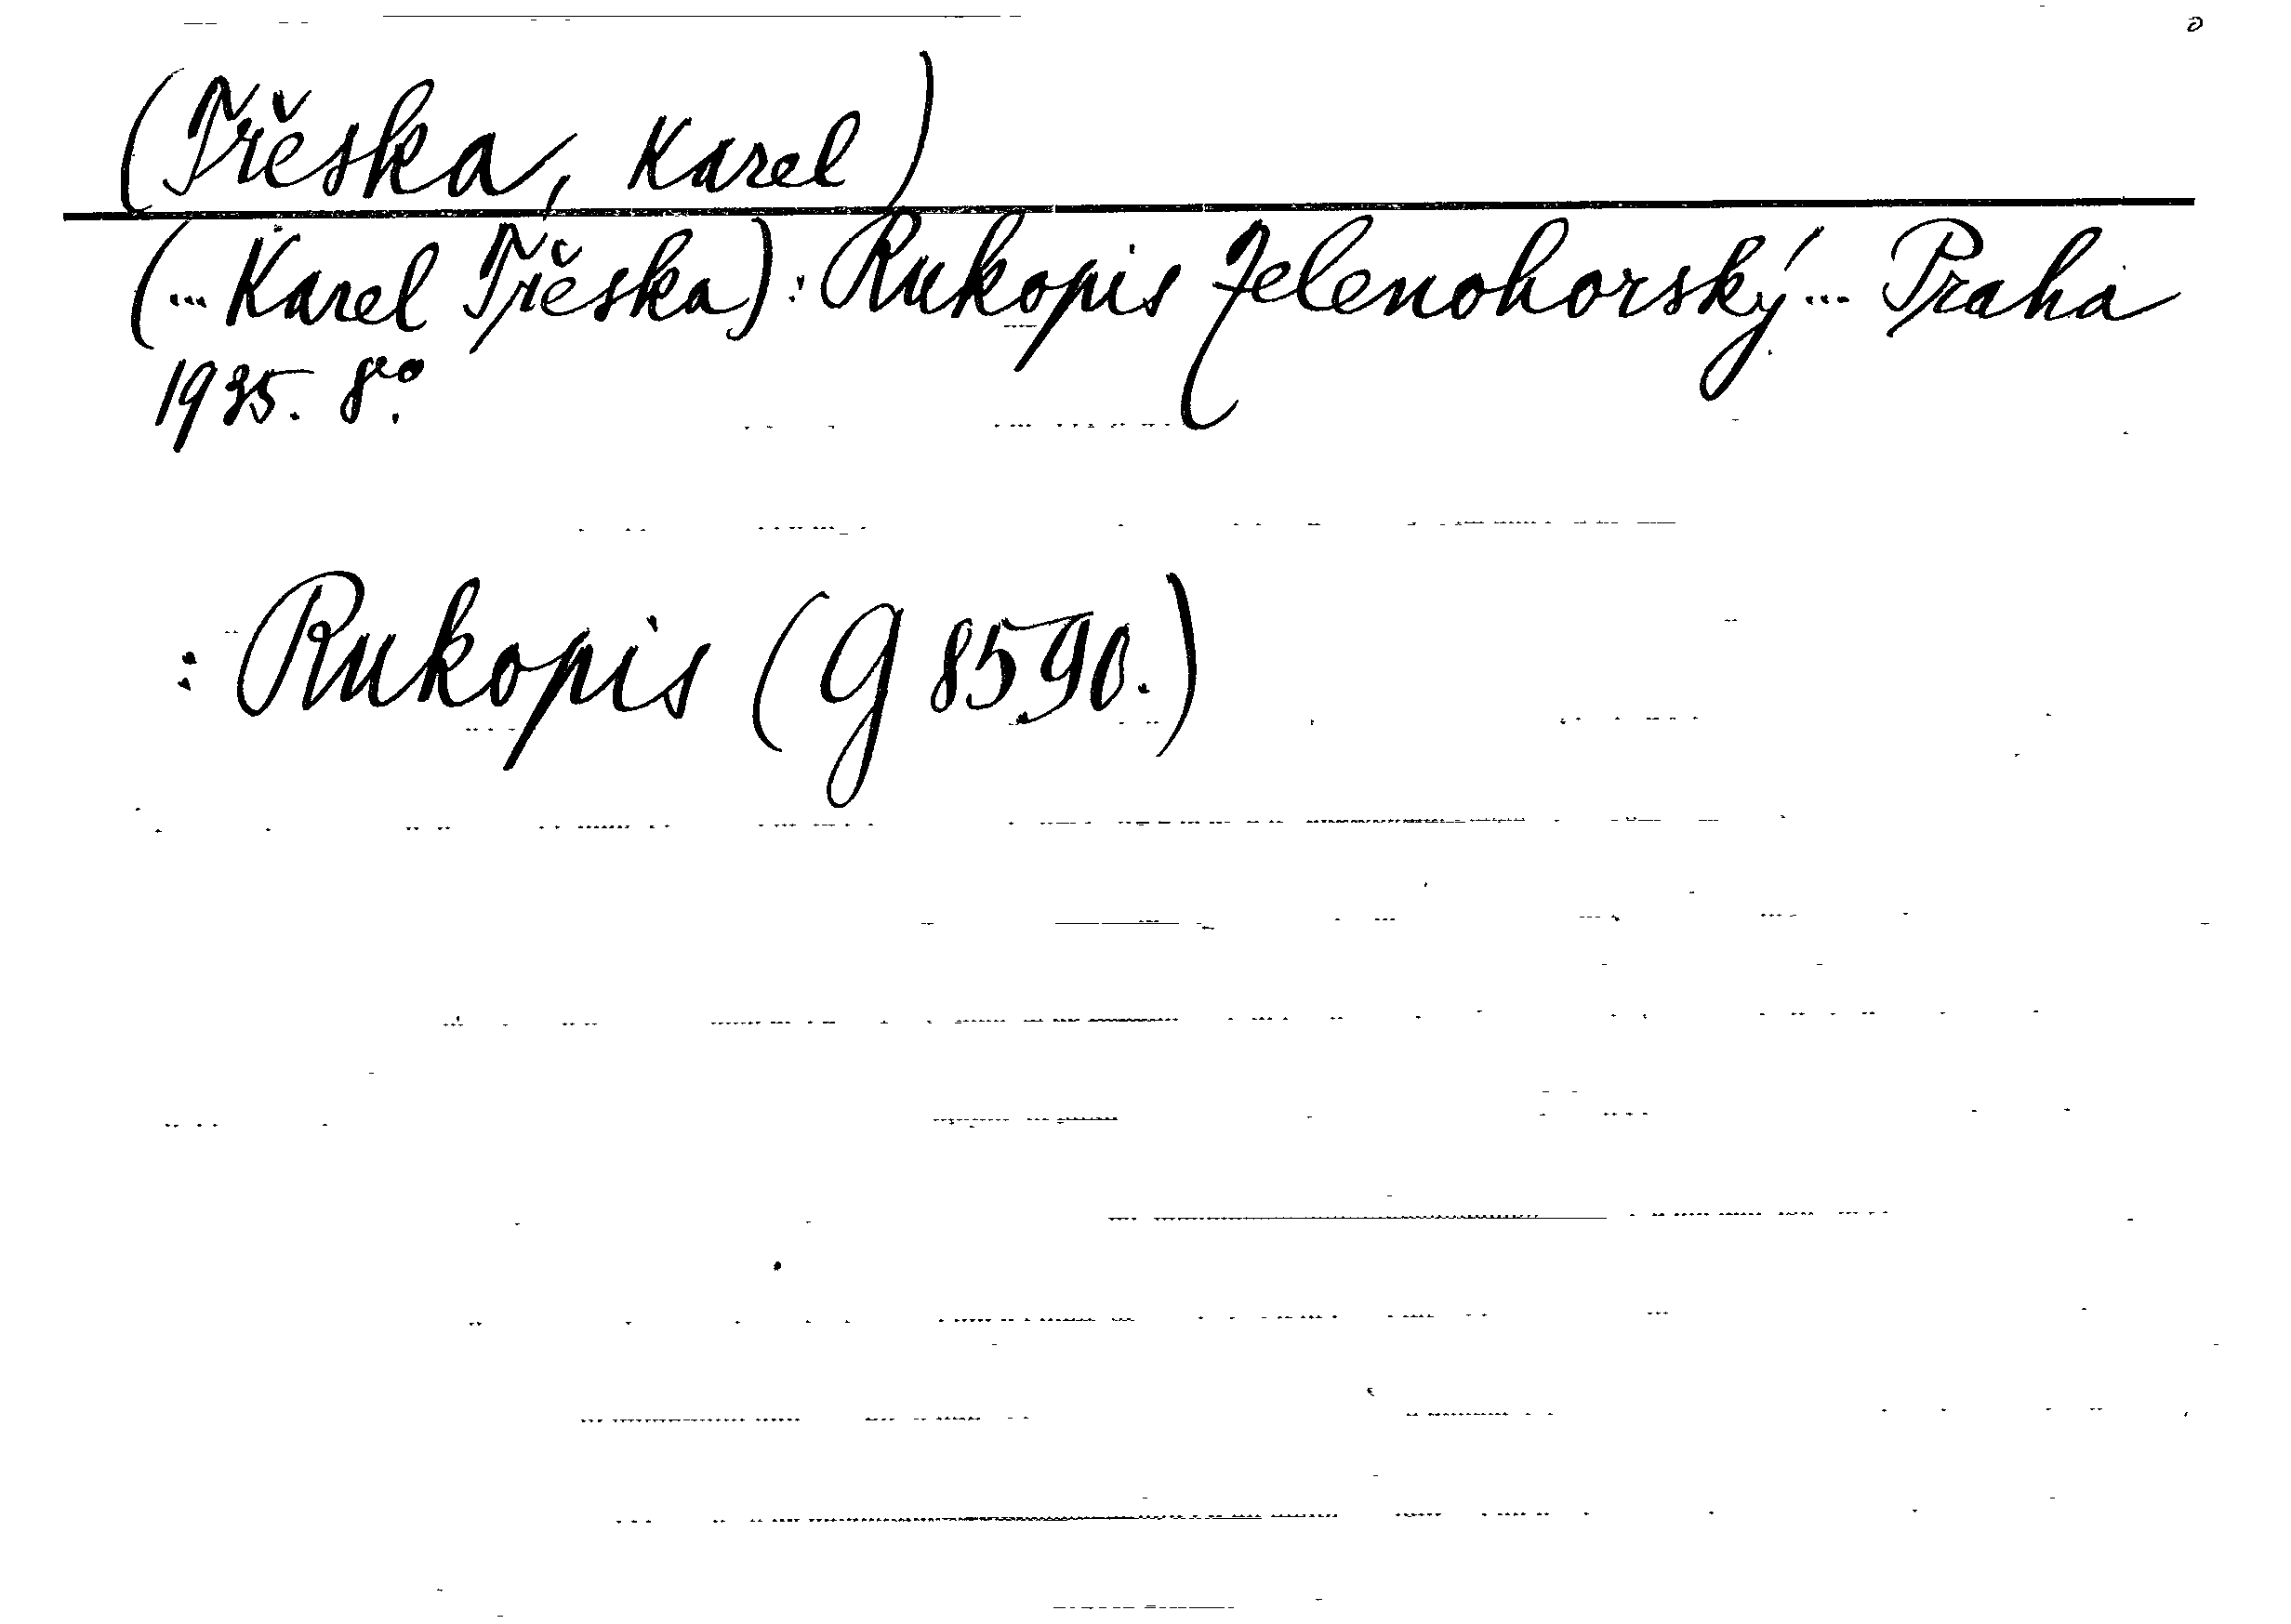 (Třěska, Karel)
(... Karel Třěska): Rukopis Zelenohorský ... Praha
1935. 8°.
: Rukopis (G 8590.)